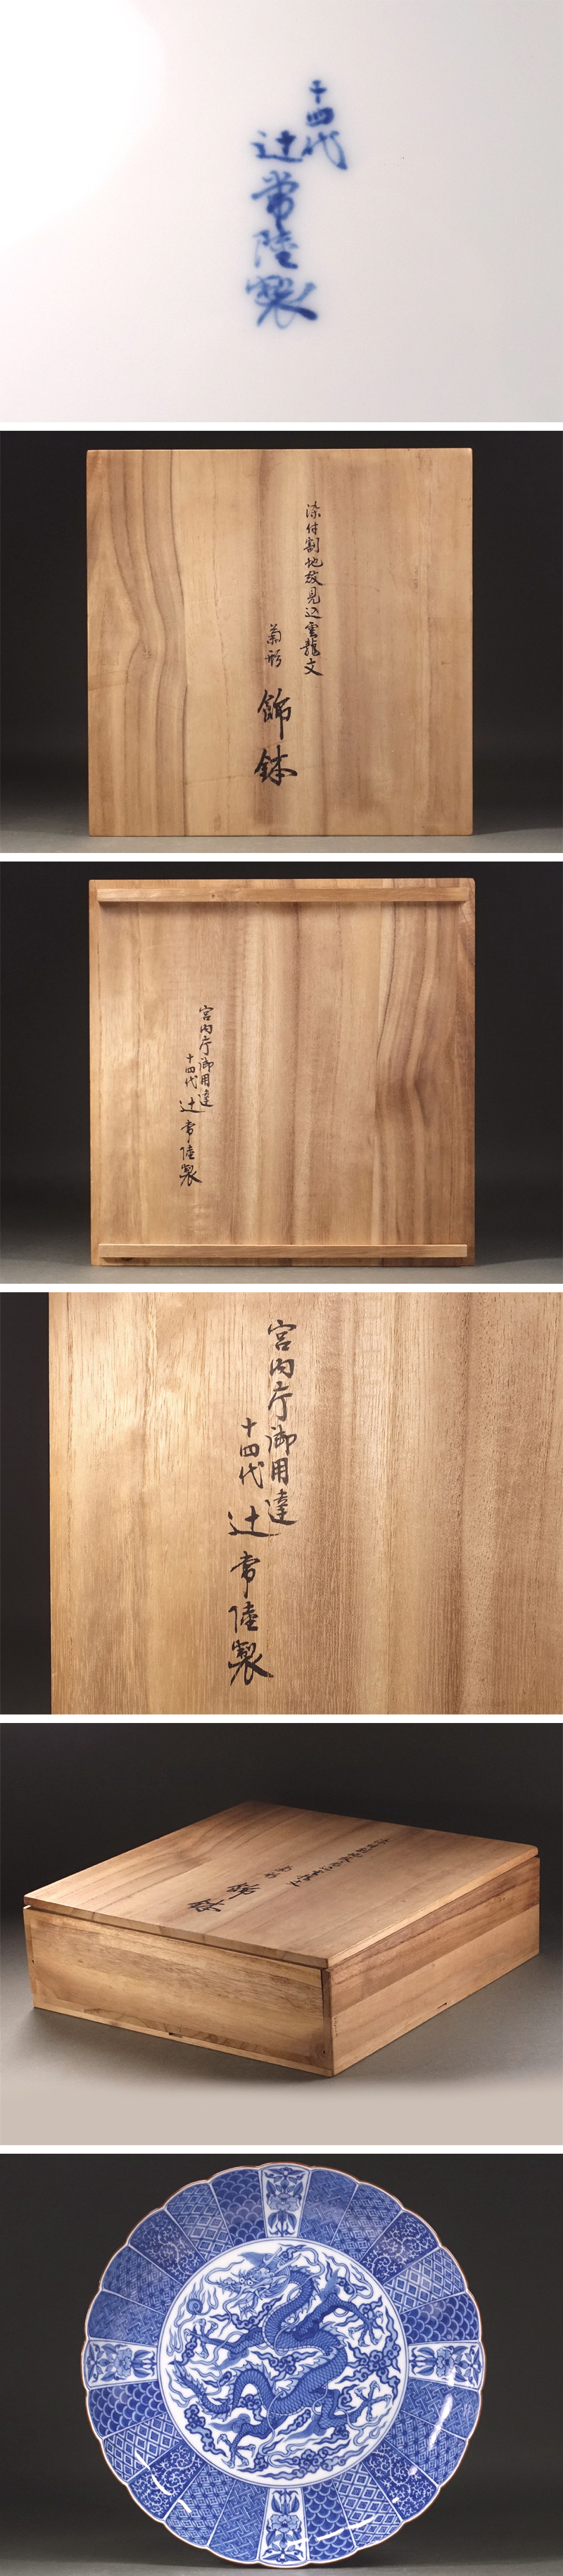 十四代
辻常陸製
染付割地紋見込雲龍文
菊形 飾鉢
宮内庁御用達
十四代 辻常陸製
宮内庁御用達
十四代 辻常陸製